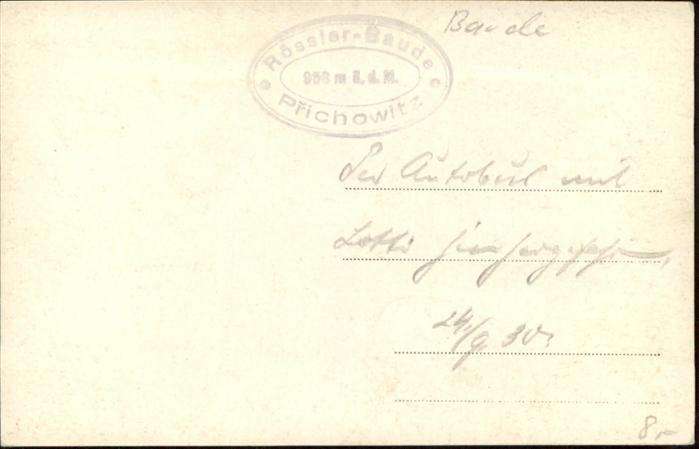 Baude
Rössler-Baude
958 m ü.d.M.
Přichowitz
Autobusl mit
Lotti
24/9 30.
8,-